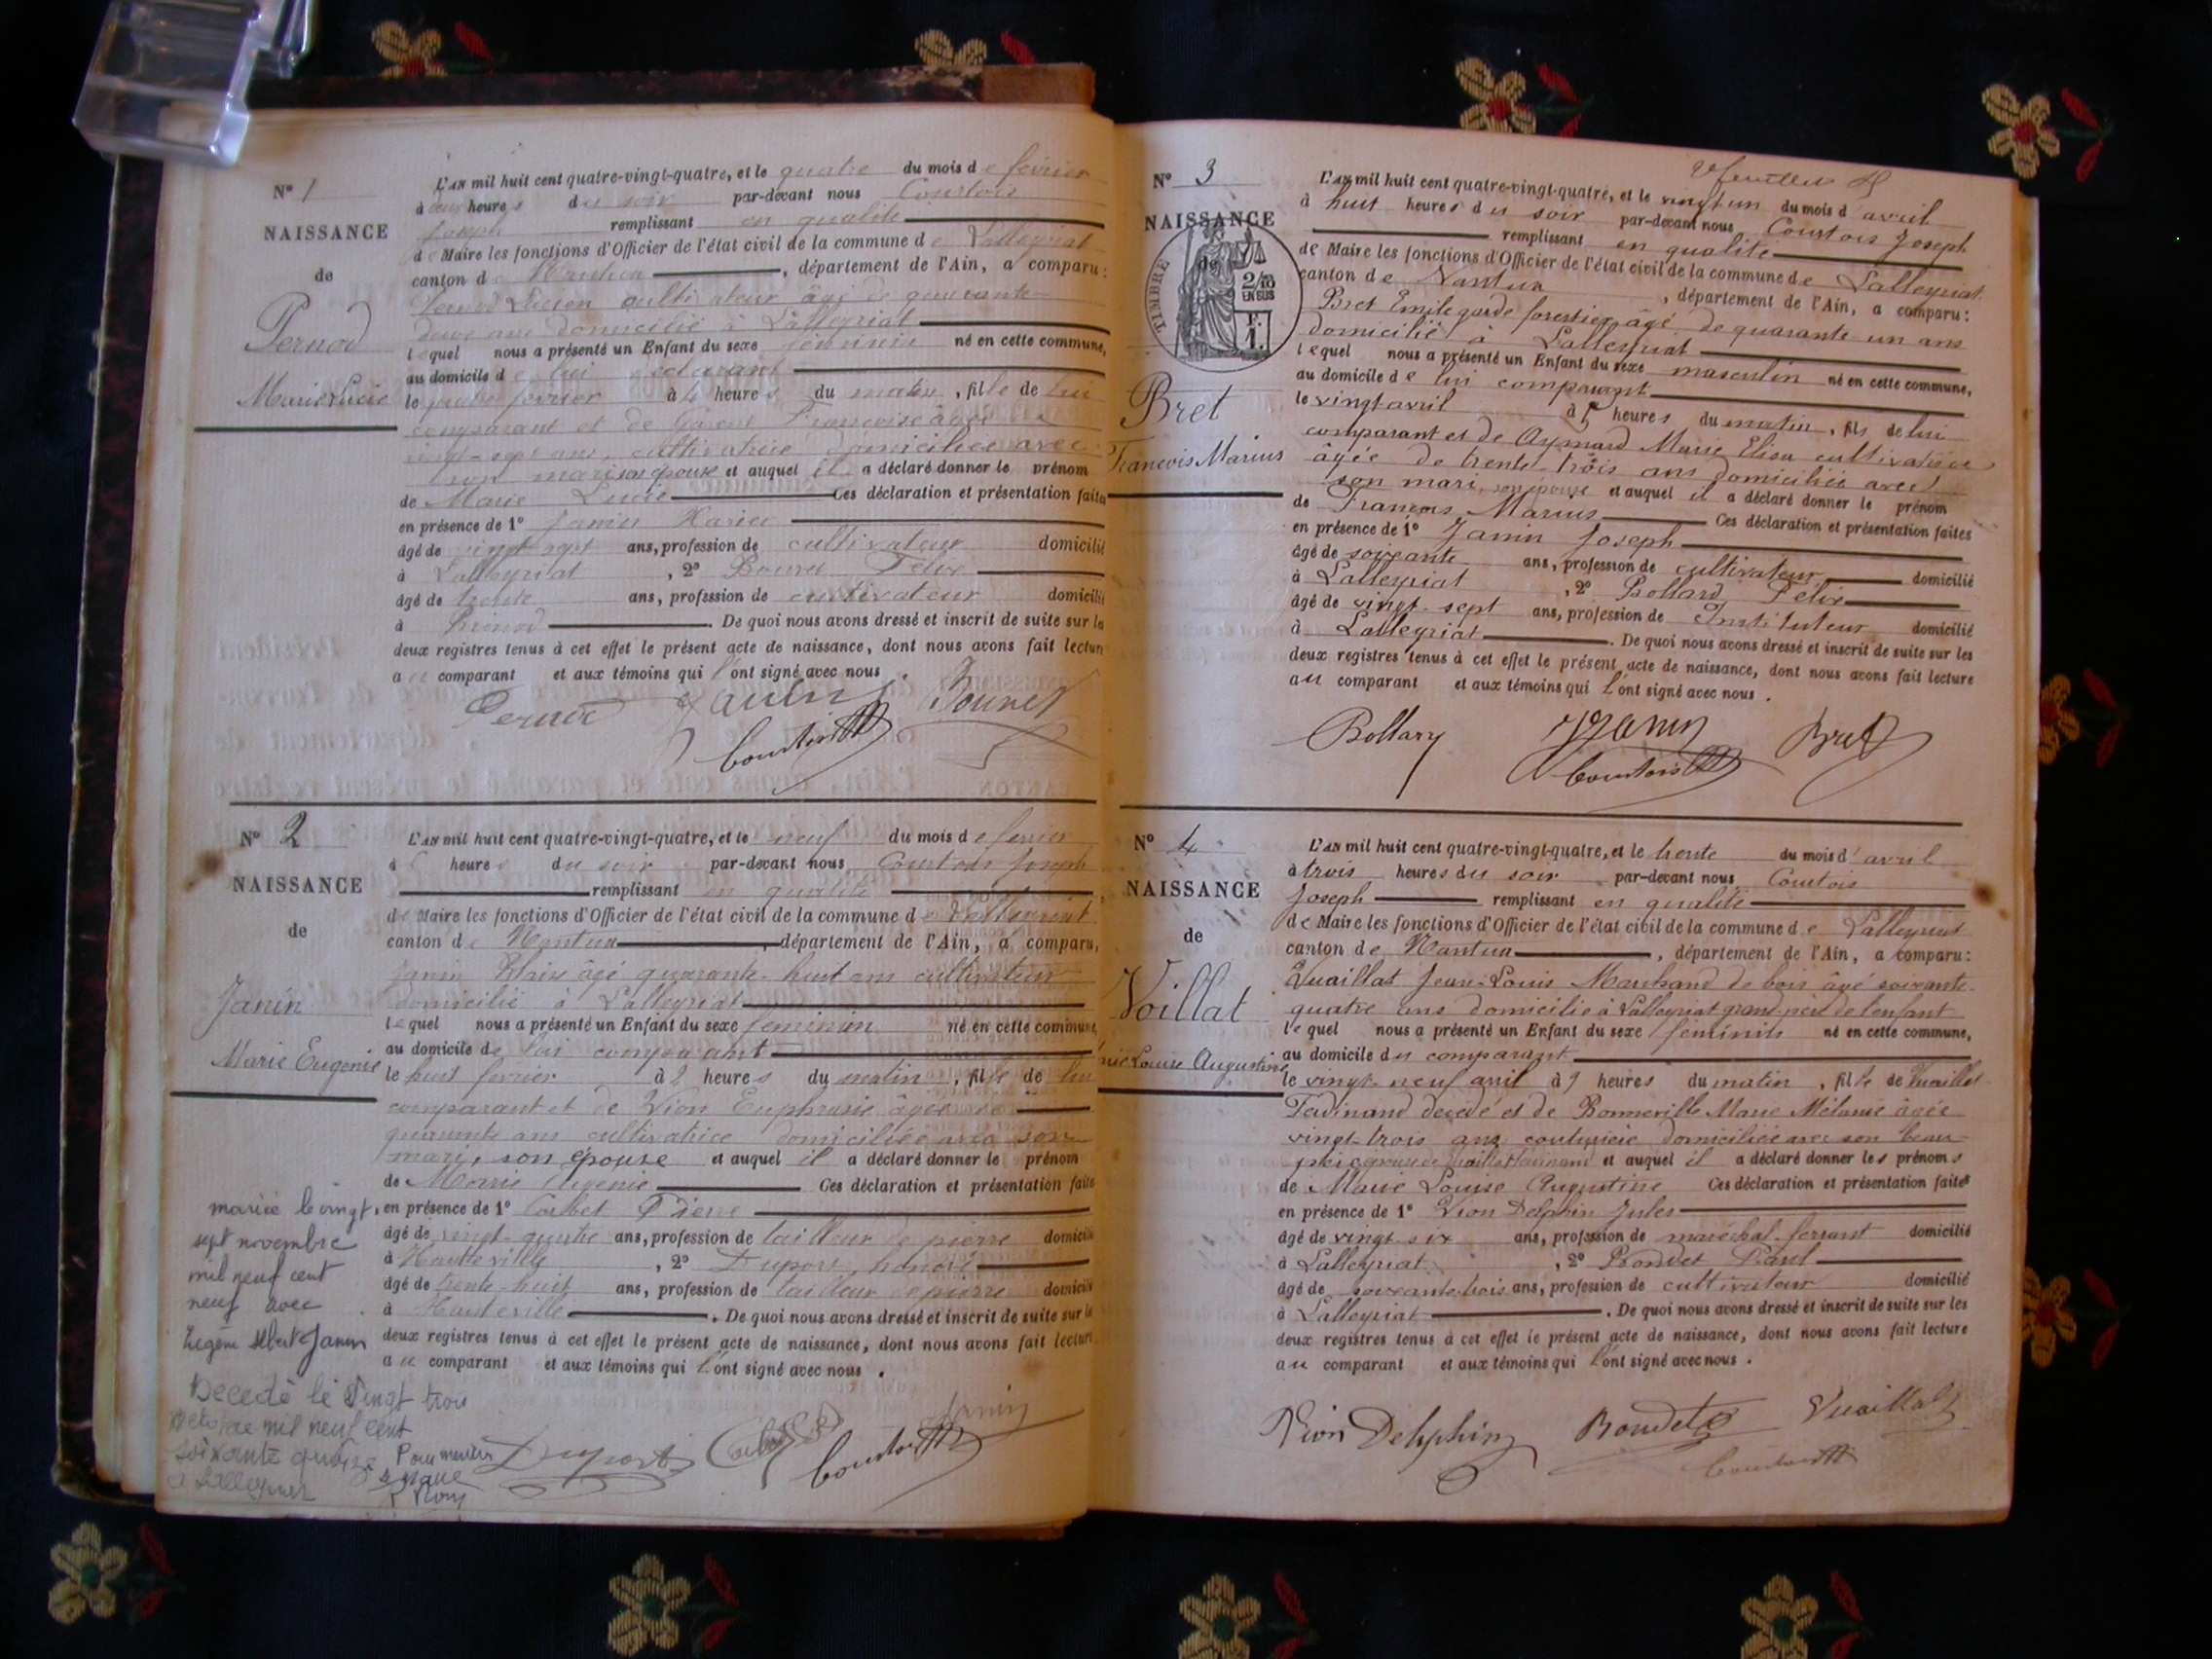 N° 1
NAISSANCE
de
Pernod
Marie Lucie
L'AN mil huit cent quatre-vingt-quatre, et le quatre du mois de février
à heures du soir par-devant nous Courtois
Joseph remplissant en qualité
de Maire les fonctions d'Officier de l'état civil de la commune de Lalleyriat
canton de Nantua, département de l'Ain, a comparu:
Pernod Lucien cultivateur âgé de quarante
deux ans domicilié à Lalleyriat
lequel nous a présenté un Enfant du sexe féminin né en cette commune,
au domicile de lui
le quatre février à 4 heures du matin, fille de lui
comparant et de Françoise âgée de
vingt-sept ans, cultivatrice domiciliée avec
son mari son épouse et auquel il a déclaré donner le prénom
de Marie Lucie Ces déclaration et présentation faites
en présence de 1° Janin
âgé de vingt sept ans, profession de cultivateur domicilié
à Lalleyriat, 2° Félix
âgé de trente ans, profession de cultivateur domicilié
à. De quoi nous avons dressé et inscrit de suite sur le
deux registres tenus à cet effet le présent acte de naissance, dont nous avons fait lecture
au comparant et aux témoins qui l'ont signé avec nous.
Pernod Janin
Courtois
N° 2
NAISSANCE
de
Janin
Marie Eugénie
L'AN mil huit cent quatre-vingt-quatre, et le neuf du mois de février
à heures du soir par-devant nous Courtois Joseph
remplissant en qualité
de Maire les fonctions d'Officier de l'état civil de la commune de Lalleyriat
canton de Nantua, département de l'Ain, a comparu,
Janin âgé quarante-huit ans cultivateur
domicilié à Lalleyriat
lequel nous a présenté un Enfant du sexe féminin né en cette commune,
au domicile de lui comparant
le huit février à 2 heures du matin, fille de lui
comparant et de Vion Euphrasie âgée de
quarante ans cultivatrice domiciliée avec son
mari, son épouse et auquel il a déclaré donner le prénom
de Marie Eugénie Ces déclaration et présentation faite
en présence de 1° Corbet Pierre
âgé de vingt-quatre ans, profession de tailleur de pierre domicilié
à Hauteville, 2° Duport honoré
âgé de trente-huit ans, profession de tailleur de pierre domicilié
à Hauteville. De quoi nous avons dressé et inscrit de suite sur le
deux registres tenus à cet effet le présent acte de naissance, dont nous avons fait lecture
au comparant et aux témoins qui l'ont signé avec nous.
mariée le vingt
sept novembre
mil neuf cent
neuf avec
Eugène Albert Janin
Décedé le Vingt trois
mil neuf cent
soixante
à Lalleyriat
Pour mention
Duport Janin
Courtois
N° 3
NAISSANCE
de
TIMBRE
2/10
EN SUS
F.
1.
Bret
François Marius
L'AN mil huit cent quatre-vingt-quatre, et le vingt un du mois d'avril
à huit heures du soir par-devant nous Courtois Joseph
remplissant en qualité
de Maire les fonctions d'Officier de l'état civil de la commune de Lalleyriat
canton de Nantua, département de l'Ain, a comparu:
Bret Emile garde forestier âgé de quarante un ans
domicilié à Lalleyriat
lequel nous a présenté un Enfant du sexe masculin né en cette commune,
au domicile de lui comparant
le vingt avril à 5 heures du matin, fils de lui
comparant et de Aymard Marie Elisa cultivatrice
âgée de trente-trois ans domiciliée avec
son mari, son épouse et auquel il a déclaré donner le prénom
de François Marius Ces déclaration et présentation faites
en présence de 1° Janin Joseph
âgé de soixante ans, profession de cultivateur domicilié
à Lalleyriat, 2° Bollard Félix
âgé de vingt-sept ans, profession de Instituteur domicilié
à Lalleyriat. De quoi nous avons dressé et inscrit de suite sur les
deux registres tenus à cet effet le présent acte de naissance, dont nous avons fait lecture
au comparant et aux témoins qui l'ont signé avec nous.
Bollard Janin Bret
Courtois
N° 4
NAISSANCE
de
Voillat
Louise Augustine
L'AN mil huit cent quatre-vingt-quatre, et le trente du mois d'avril
à trois heures du soir par-devant nous Courtois
Joseph remplissant en qualité
de Maire les fonctions d'Officier de l'état civil de la commune de Lalleyriat
canton de Nantua, département de l'Ain, a comparu:
Vuaillat Jean-Louis Marchand de bois âgé soixante-
quatre ans domicilié à Lalleyriat grand père de l'enfant
lequel nous a présenté un Enfant du sexe féminin né en cette commune,
au domicile du comparant
le vingt-neuf avril à 9 heures du matin, fille de Vuaillat
Ferdinand décédé et de Bonneville Marie Mélanie âgée
vingt-trois ans couturière domiciliée avec son beau-
père épouse de Vuaillat Ferdinand et auquel il a déclaré donner les prénoms
de Marie Louise Augustine Ces déclaration et présentation faites
en présence de 1° Vion Delphin Jules
âgé de vingt six ans, profession de maréchal-ferrant domicilié
à Lalleyriat, 2° Boudet Paul
âgé de soixante-trois ans, profession de cultivateur domicilié
à Lalleyriat. De quoi nous avons dressé et inscrit de suite sur les
deux registres tenus à cet effet le présent acte de naissance, dont nous avons fait lecture
au comparant et aux témoins qui l'ont signé avec nous.
Vion Delphin Boudet Vuaillat
Courtois